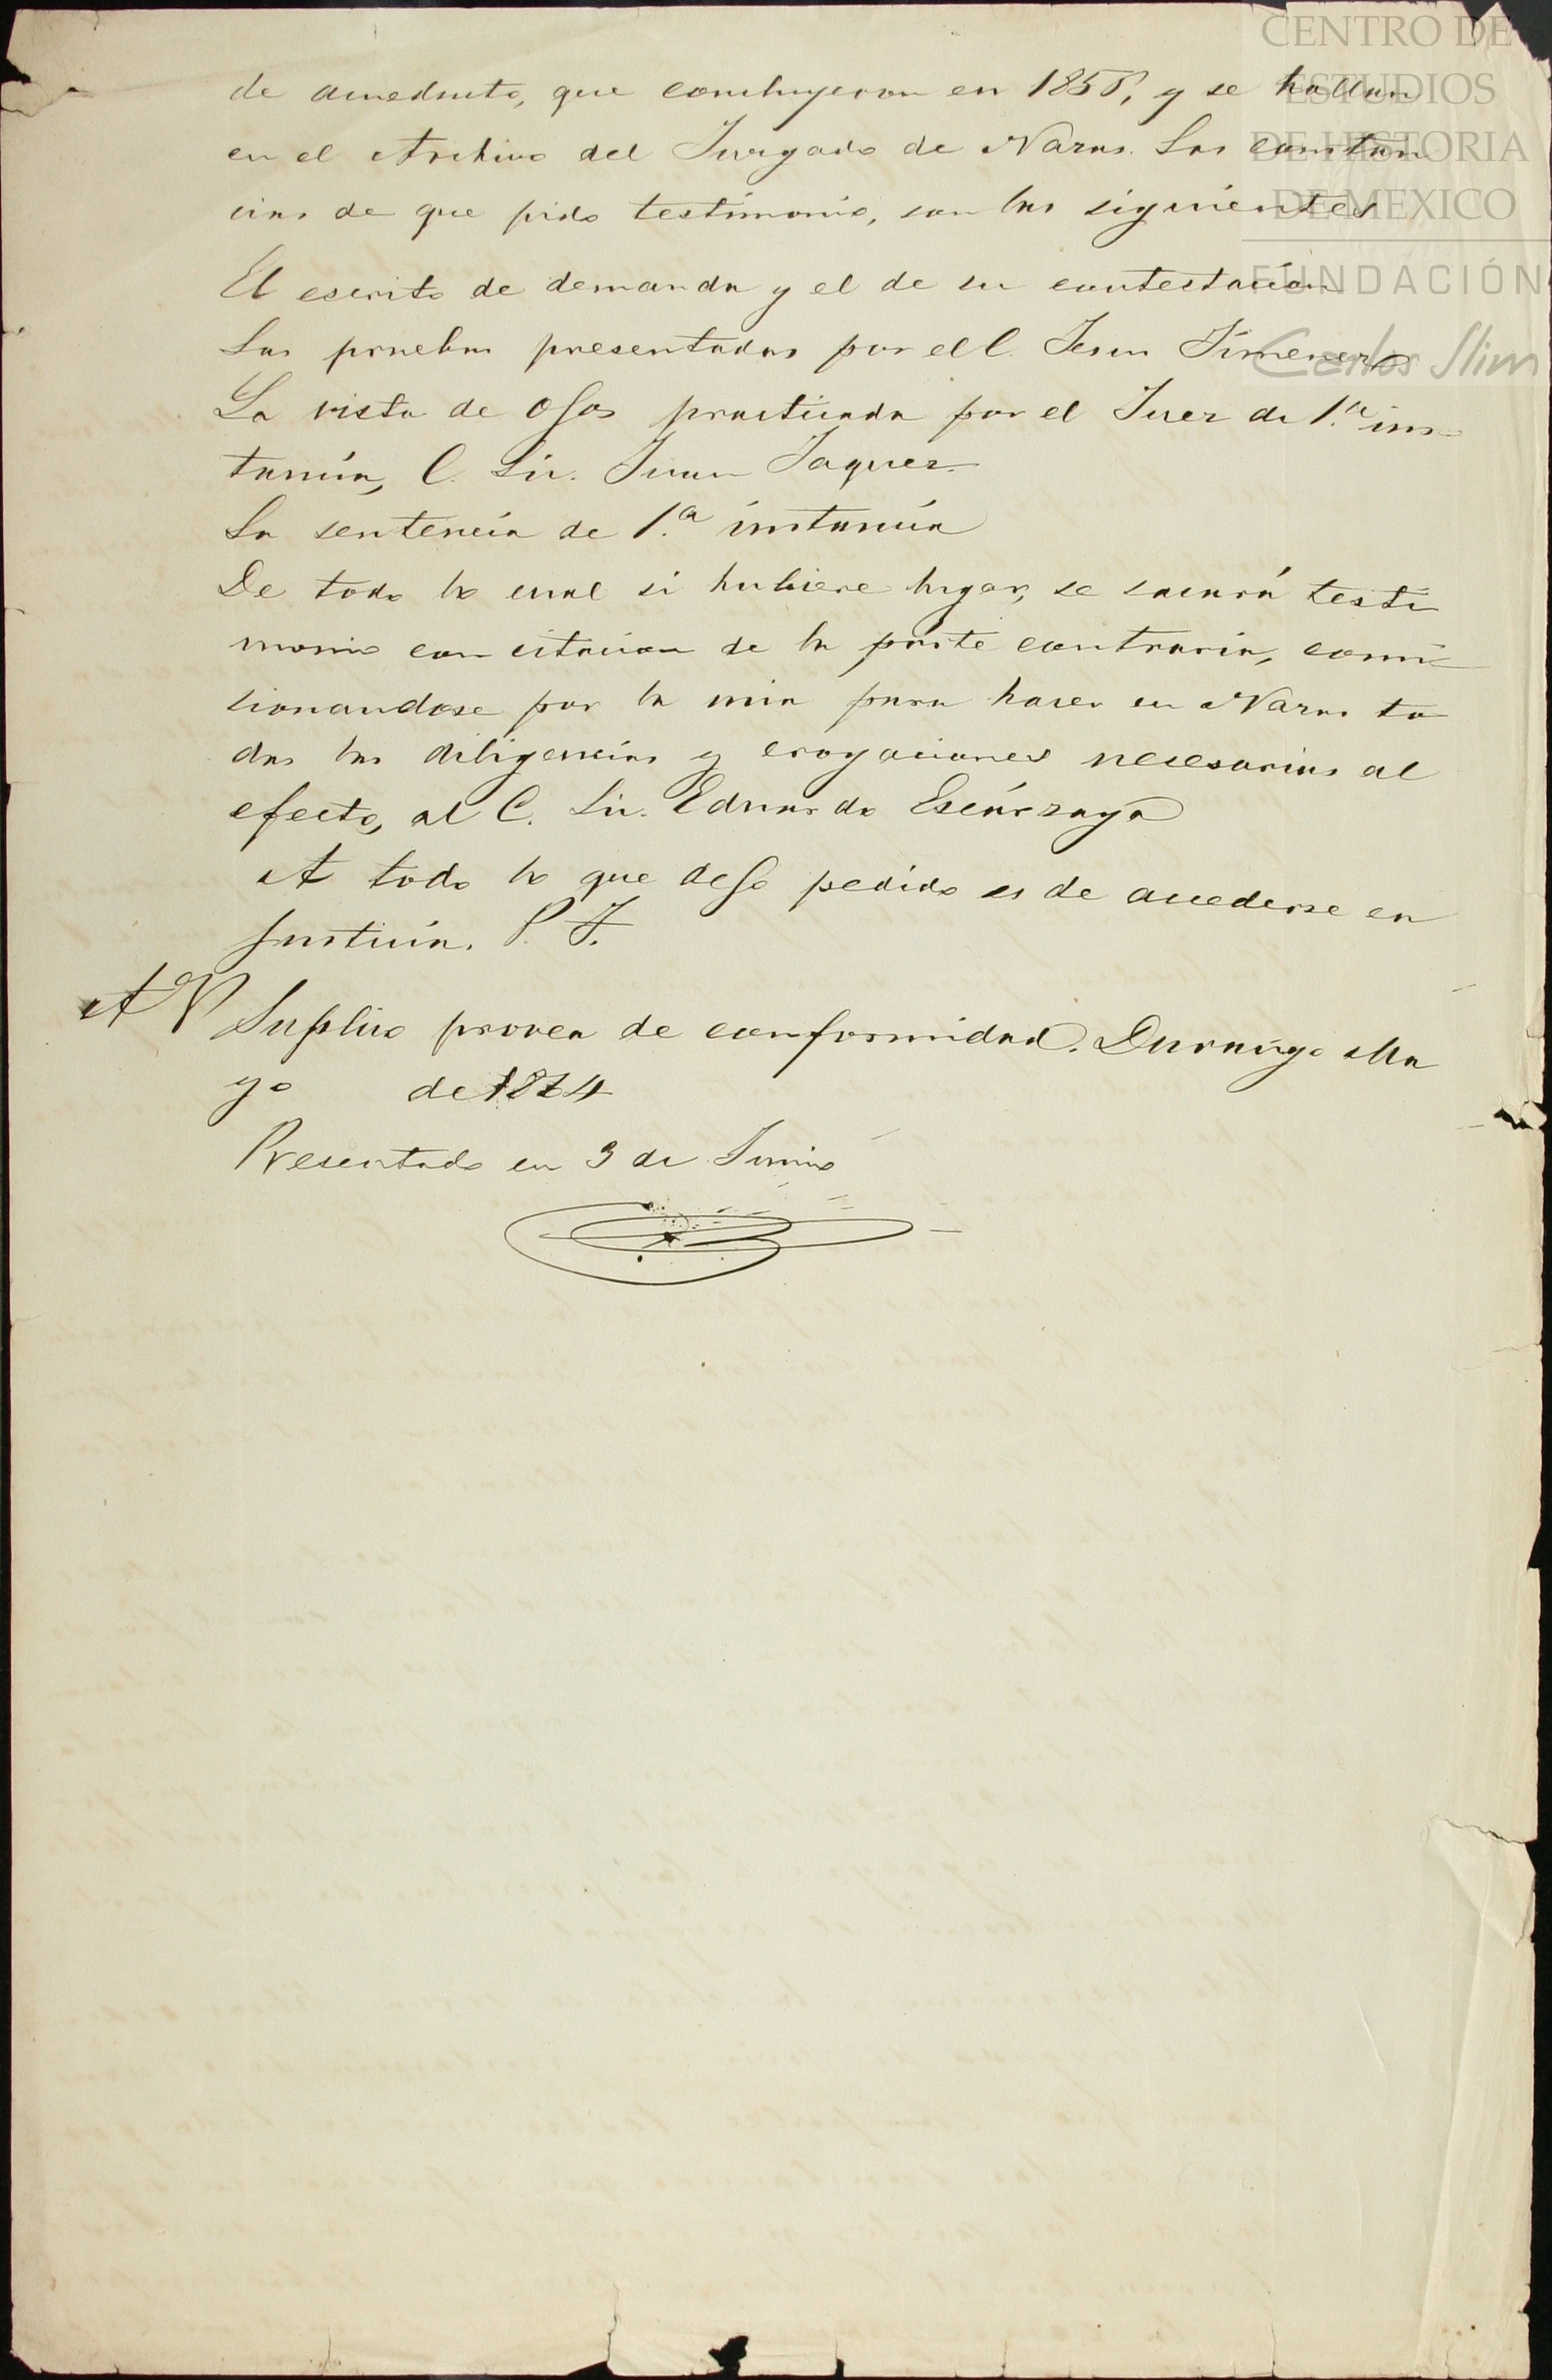 de acueducto, que concluyeron en 1858, y se hallan
en el Archivo del Juzgado de Nazas. Las constan
cias de que pido testimonio, son las siguientes
El escrito de demanda y el de su contestacion
Las pruebas presentadas por el C. Jesus Jimenez
La vista de ojos practicada por el Juez de 1.ª ins-
tancia, C. Lic. Juan Jaquez.
La sentencia de 1.ª instancia
De todo lo cual si hubiere lugar, se sacará testi
monio con citacion de la parte contraria, comi
sionandose por la mia para hacer en Nazas to
das las diligencias y erogaciones necesarias al
efecto, al C. Lic. Eduardo Escárzaga
A todo lo que dejo pedido es de accederse en
justicia. P. J.
A V Suplico provea de conformidad. Durango Ma
yo de 1874
Presentado en 3 de Junio
CENTRO DE
ESTUDIOS
DE HISTORIA
DE MEXICO
FUNDACIÓN
Carlos Slim